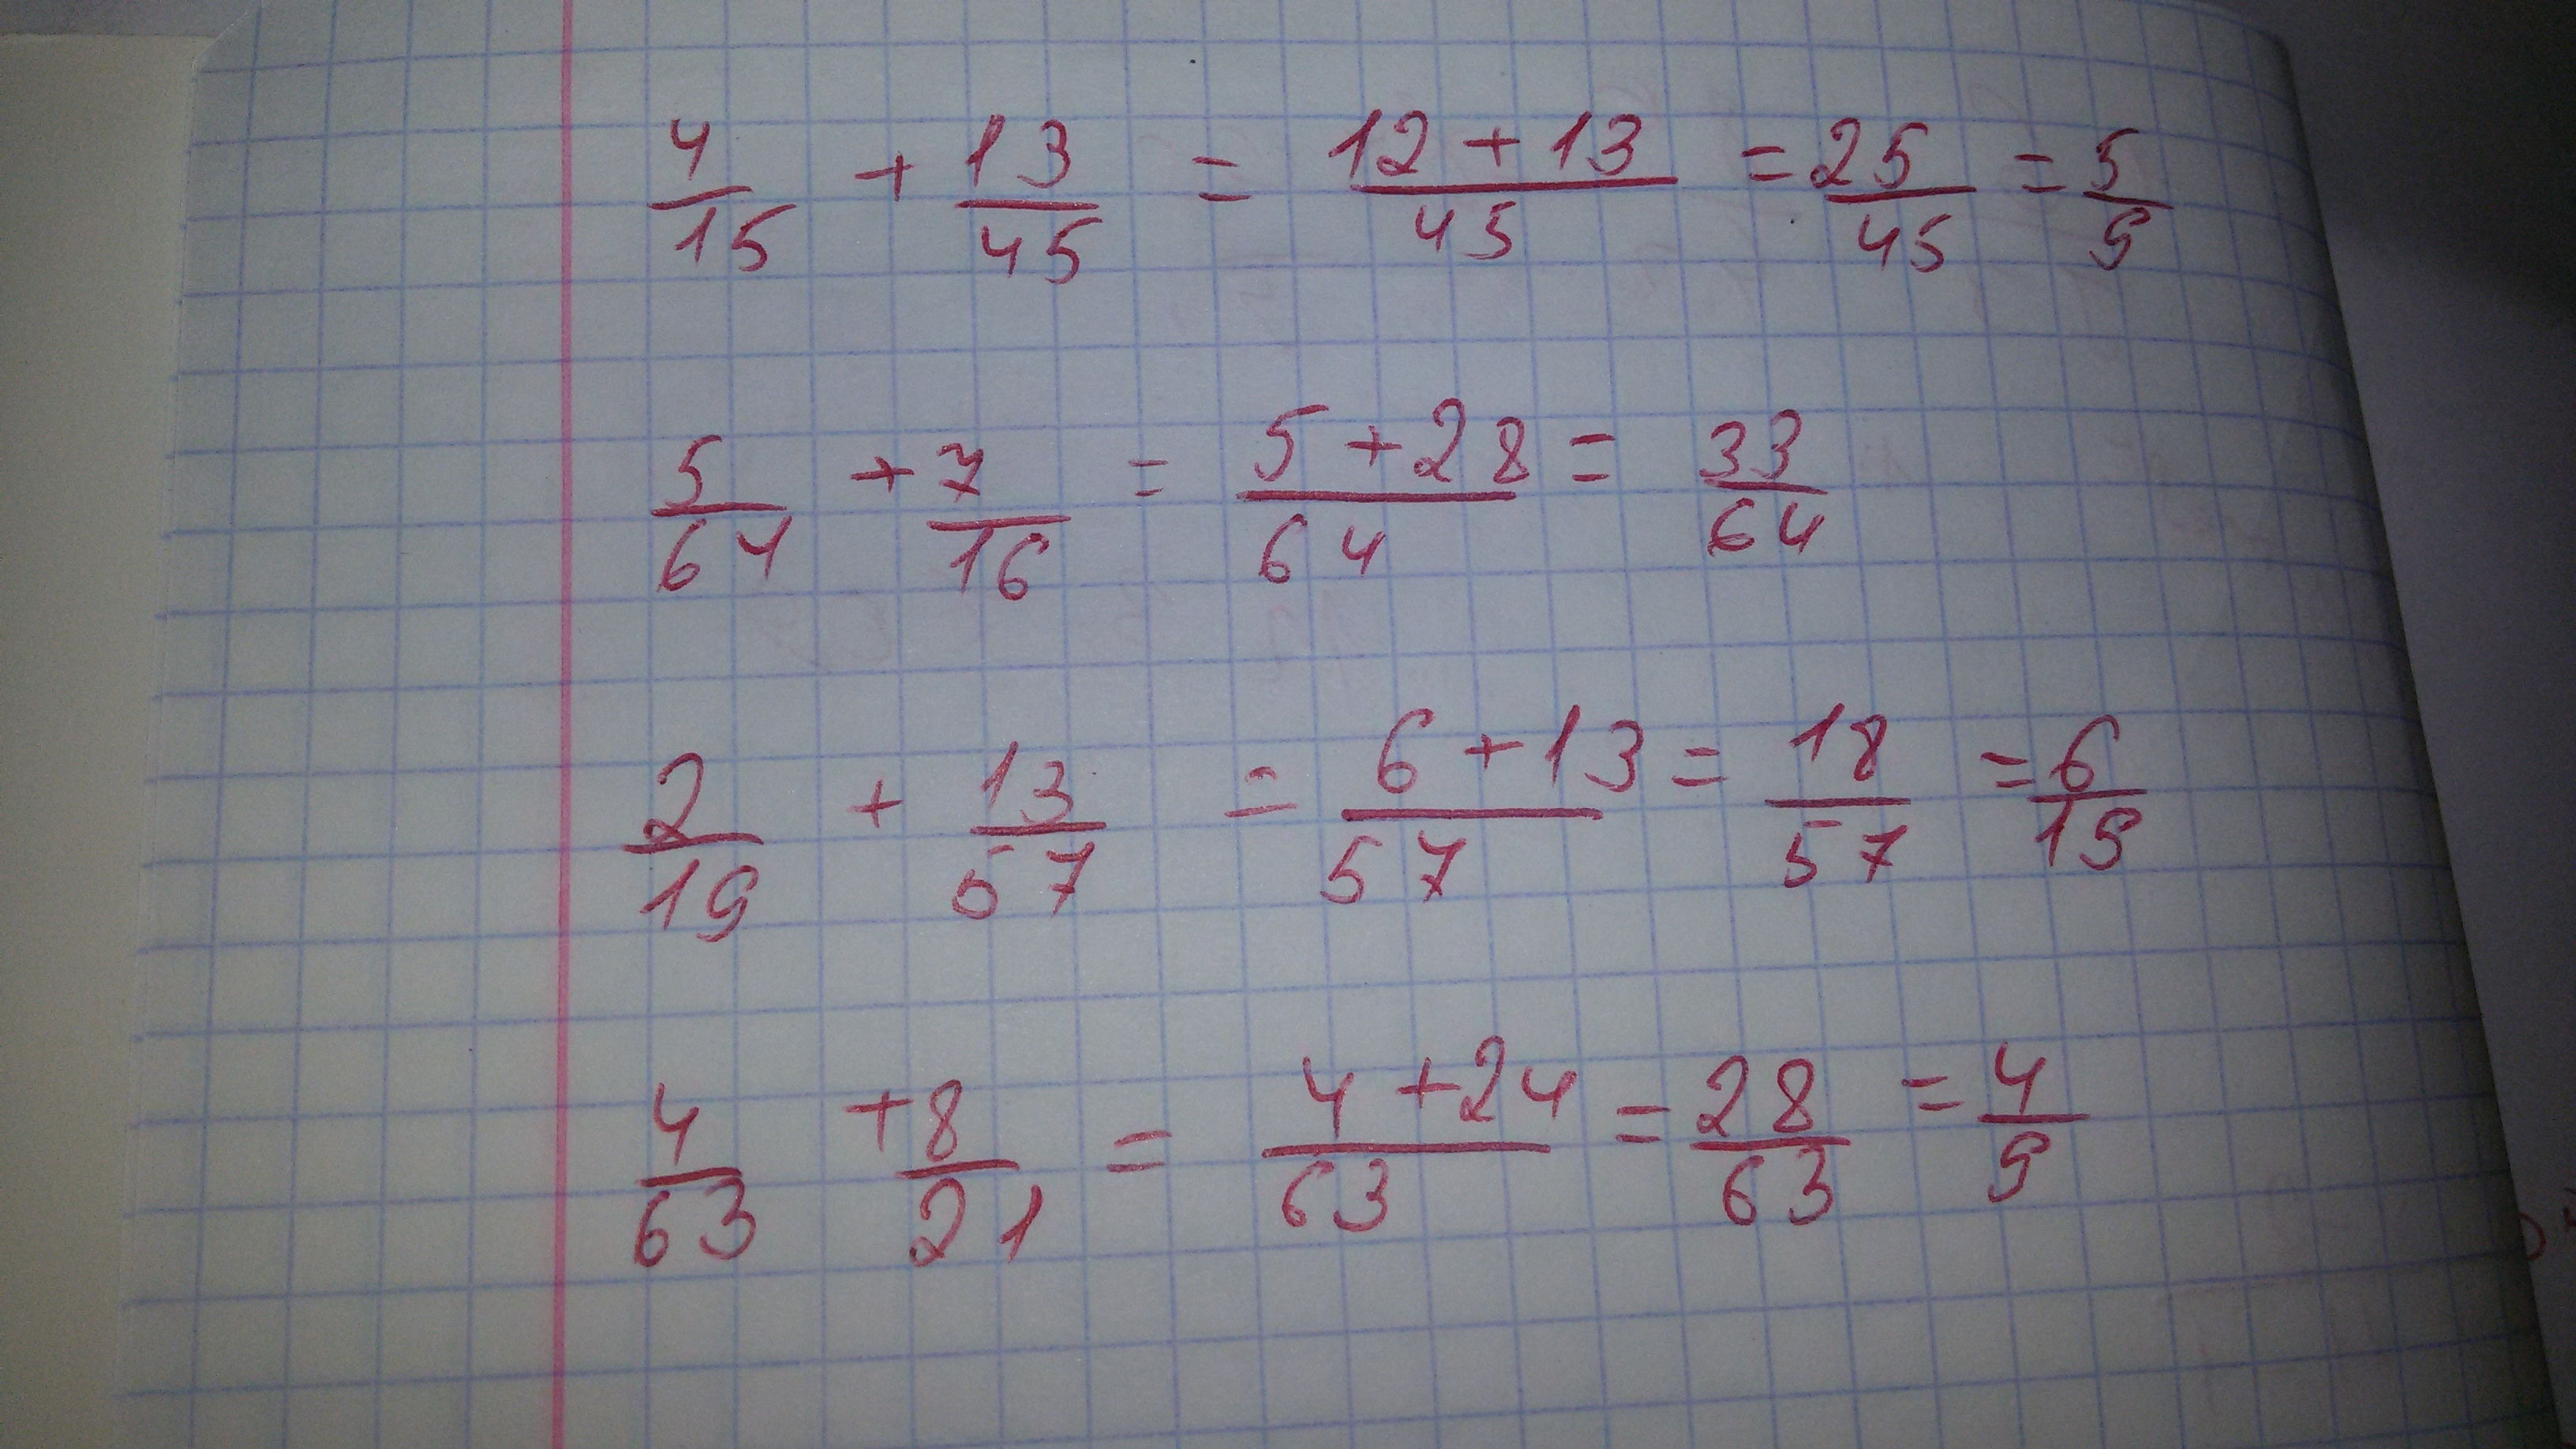 4/15 + 13/45 = 12 + 13/45 = 25/45 = 5/9
5/64 + 7/16 = 5 + 28/64 = 33/64
2/19 + 13/57 = 6 + 13/57 = 18/57 = 6/19
4/63 + 8/21 = 4 + 24/63 = 28/63 = 4/9